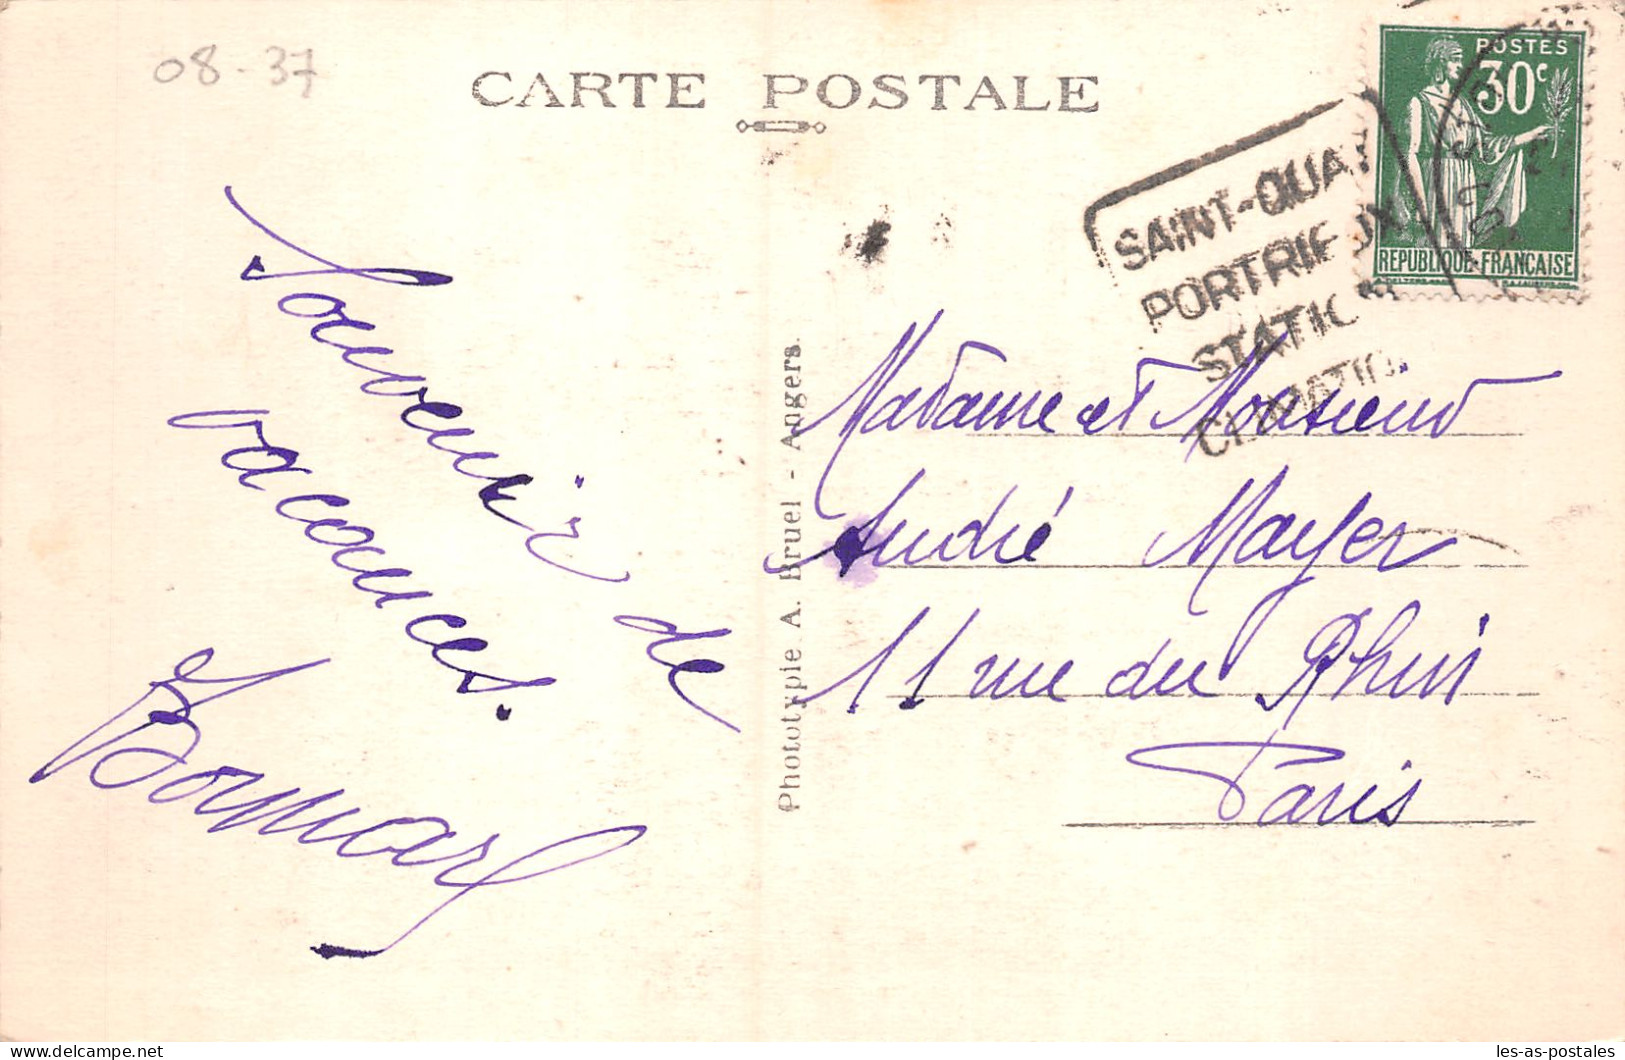 08-37
CARTE POSTALE
POSTES
30c
REPUBLIQUE FRANCAISE
SAINT-QUA
PORTRIEUX
STATION
CLIMATIQ
Souvenir de
vacances.
Phototypie A. Bruel - Angers.
Madame et Monsieur
André Mayer
11 rue du Rhin
Paris
delcampe.net
les-as-postales